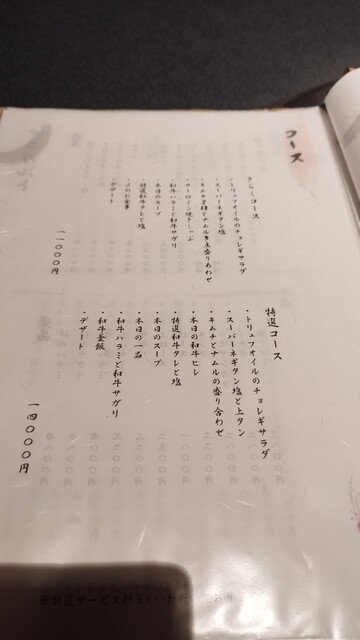 コース
きらくコース
・トリュフオイルのチョレギサラダ
・スーパーネギタン塩
・キムチ2種とナムル3点盛りあわせ
・サーロイン焼きしゃぶ
・和牛ハラミと和牛サガリ
・本日のスープ
・特選和牛タレと塩
・〆のお食事
・デザート
11000円
特選コース
・トリュフオイルのチョレギサラダ
・スーパーネギタン塩と上タン
・キムチとナムルの盛り合わせ
・本日の和牛ヒレ
・特選和牛タレと塩
・本日のスープ
・本日の一品
・和牛ハラミと和牛サガリ
・和牛釜飯
・デザート
14000円